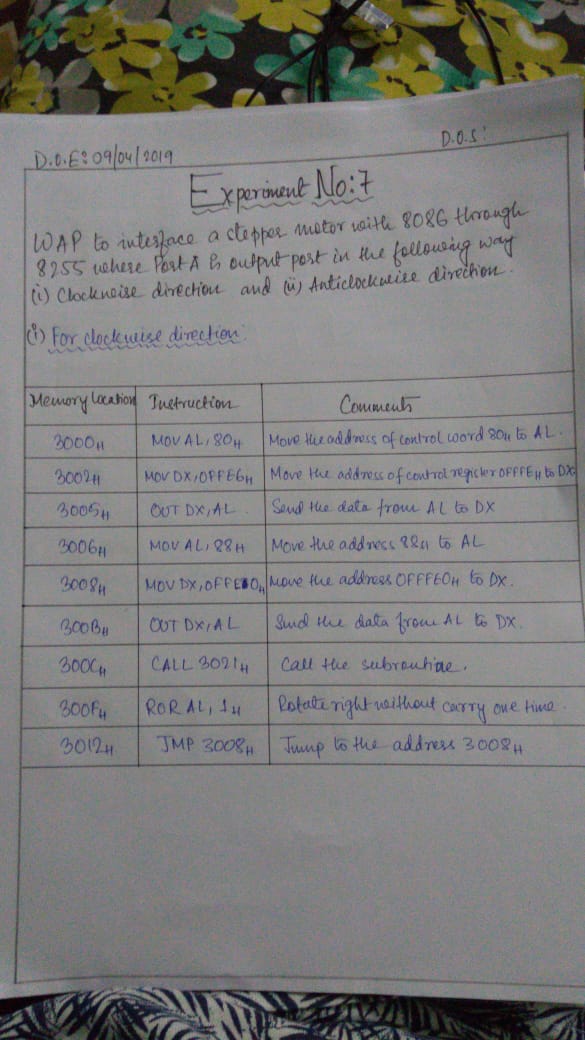 D.O.E: 09/04/2019
D.O.S:
Experiment No:7
WAP to interface a stepper motor with 8086 through
8255 where Port A is output port in the following way
(i) Clockwise direction and (ii) Anticlockwise direction.
(i) For clockwise direction:
Memory location Instruction Comments
3000H MOV AL, 80H Move the address of control word 80H to AL.
3002H MOV DX, OFFE6H Move the address of control register OFFFEH to DX
3005H OUT DX, AL. Send the data from AL to DX
3006H MOV AL, 88H Move the address 88H to AL
3008H MOV DX, OFFE0H Move the address OFFFE0H to DX.
300BH OUT DX, AL Send the data from AL to DX.
300CH CALL 3021H Call the subroutine.
300FH ROR AL, 1H Rotate right without carry one time.
3012H JMP 3008H Jump to the address 3008H